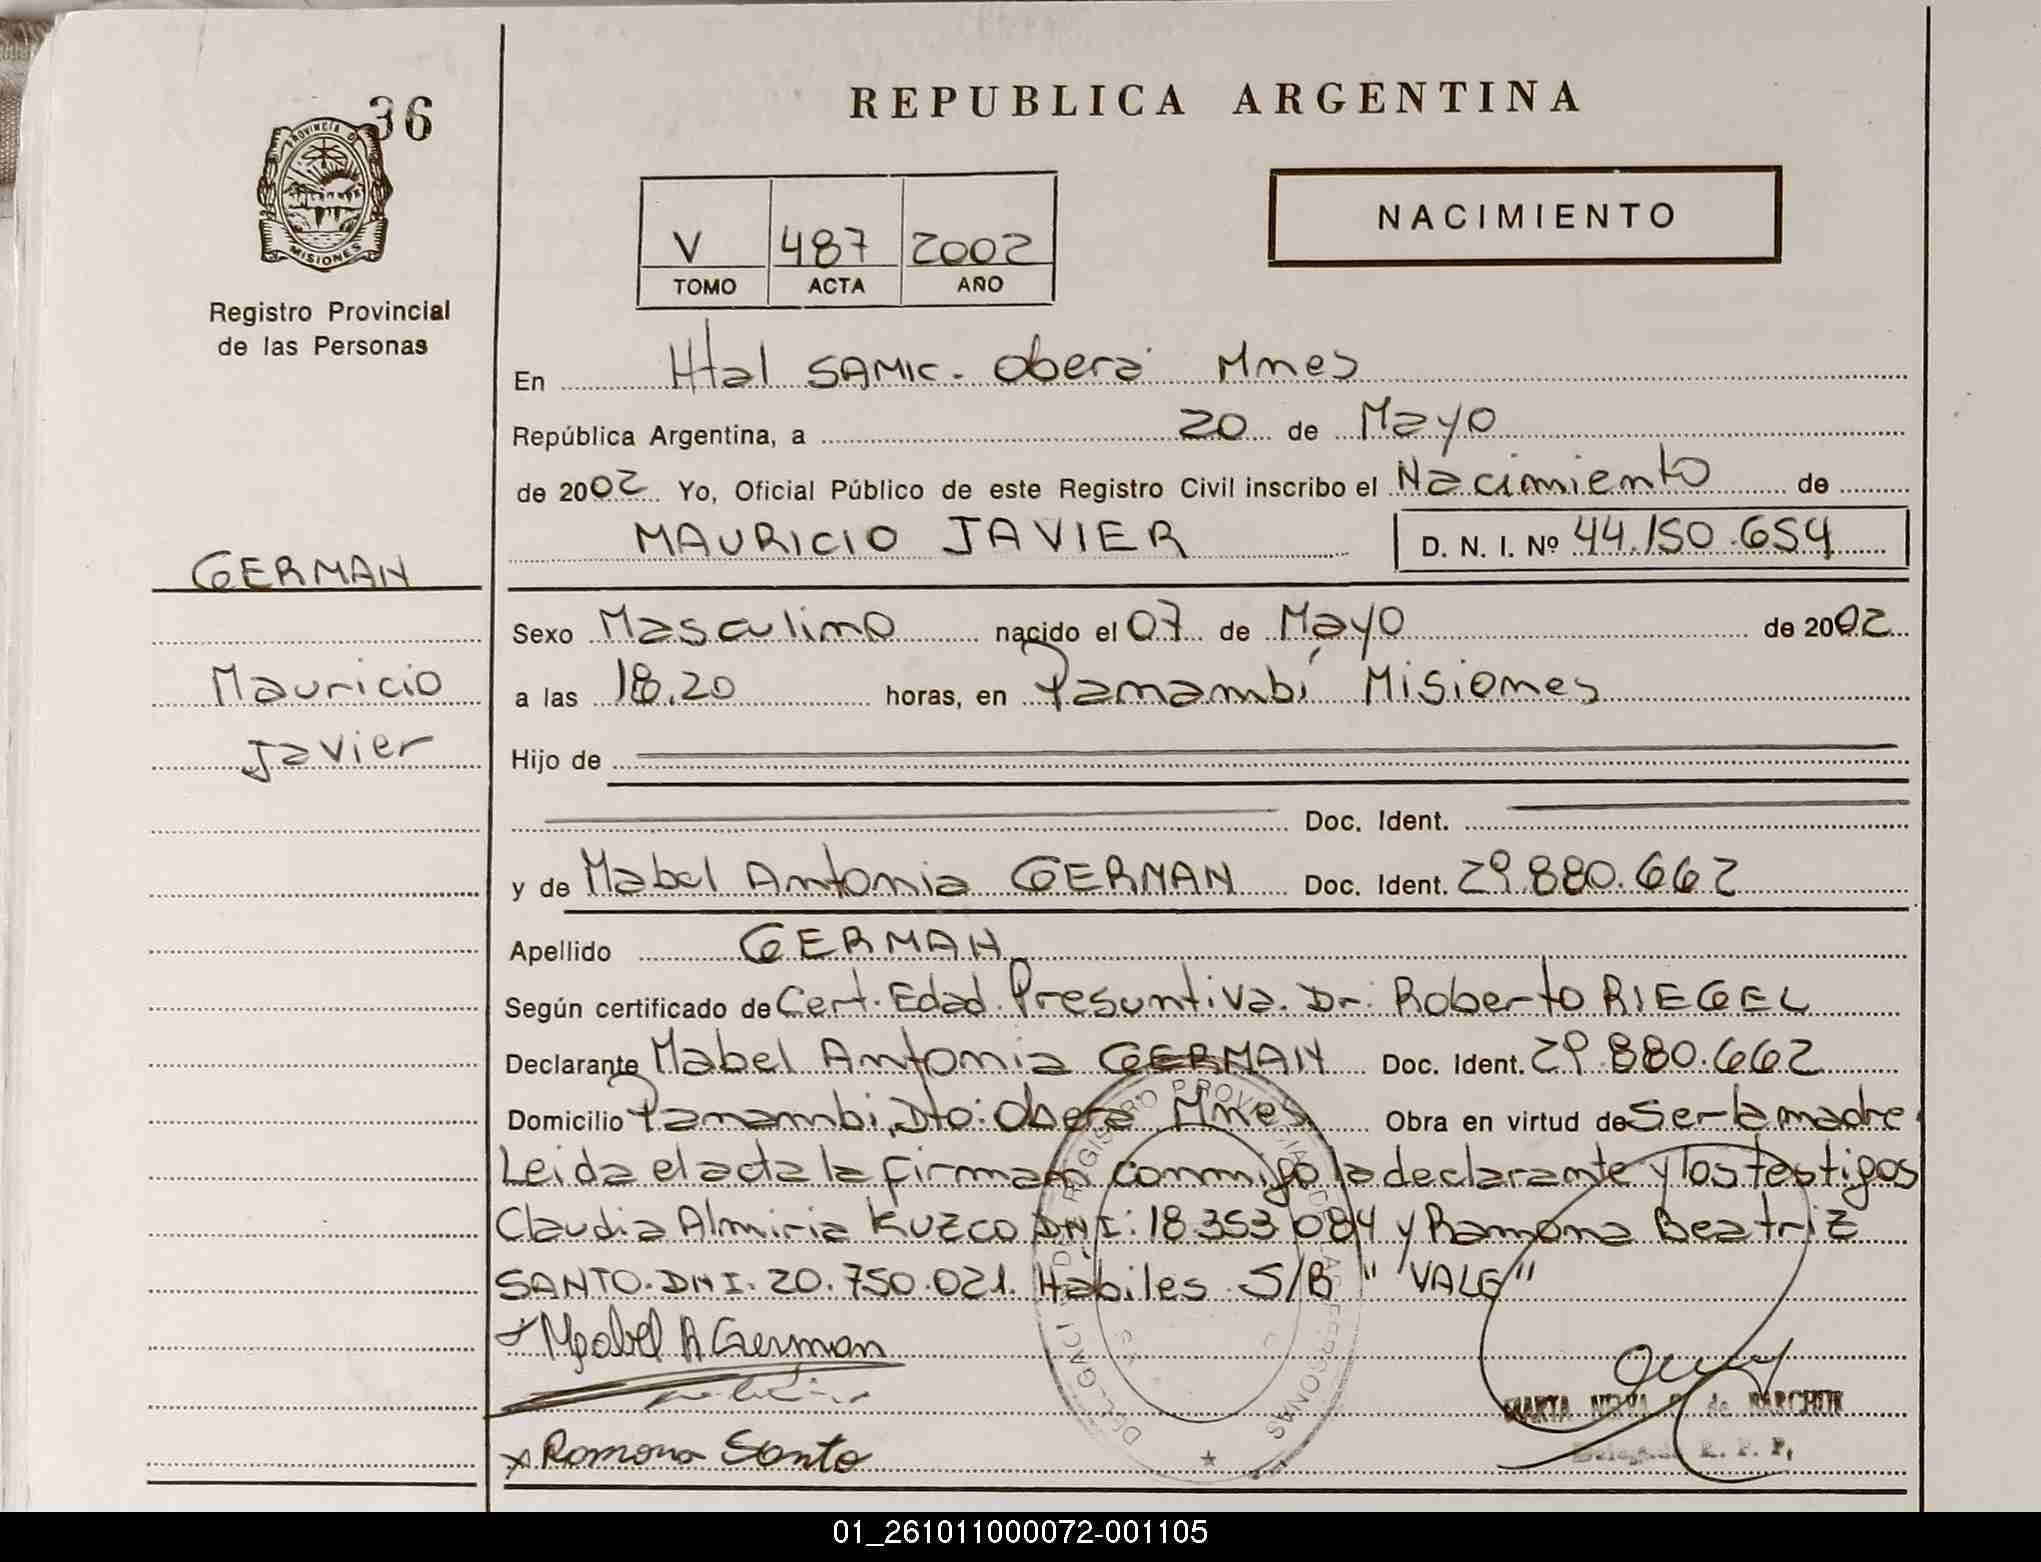 36
PROVINCIA DE
MISIONES
Registro Provincial
de las Personas
REPUBLICA ARGENTINA
NACIMIENTO
V 487 2002
TOMO ACTA AÑO
En Htal SAMIC. Oberá Mnes
República Argentina, a 20 de Mayo
de 2002 Yo, Oficial Público de este Registro Civil inscribo el Nacimiento de
MAURICIO JAVIER D. N. I. Nº 44.150.654
GERMAN
Mauricio
Javier
Sexo Masculino nacido el 07 de Mayo de 2002
a las 18.20 horas, en Panambí Misiones
Hijo de
Doc. Ident.
y de Mabel Antonia GERMAN Doc. Ident. 29.880.662
Apellido GERMAN
Según certificado de Cert. Edad Presuntiva. Dr. Roberto RIEGEL
Declarante Mabel Antonia GERMAN Doc. Ident. 29.880.662
Domicilio Panambi, Dto: Oberá Mnes Obra en virtud de Ser la madre
Leida el acta la firman conmigo la declarante y los testigos
Claudia Almiria KUZCO DNI: 18.353.084 y Ramona Beatriz
SANTO. DNI. 20.750.021. Hábiles S/B "VALE"
Mabel A German
x Ramona Santo
REGISTRO PROVINCIAL DE LAS PERSONAS
MARTA de MARCHUK
Delegada R. P. P.
01_261011000072-001105